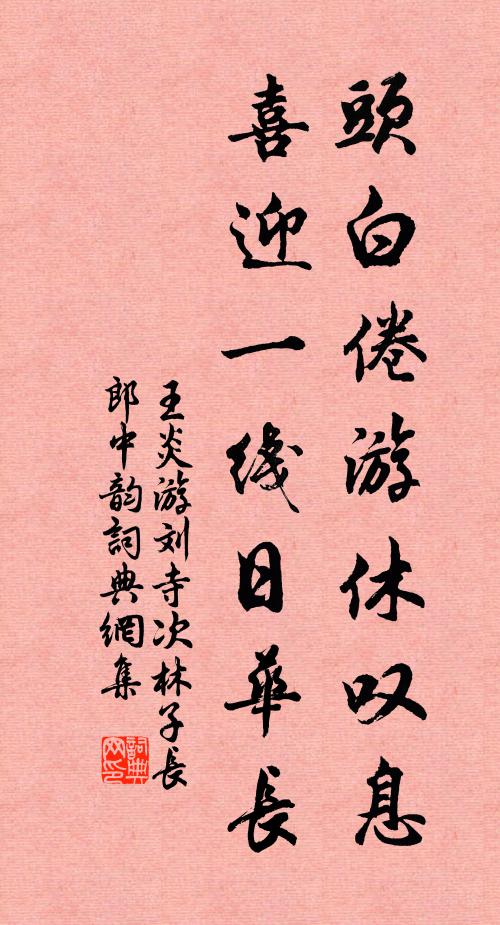 頭白倦游休叹息
喜迎一綫日華長
王炎游刘寺次林子長
郎中韵詞典網集
詞典网印